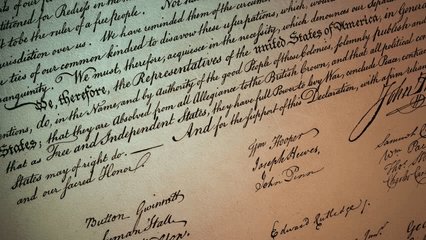 titioned for Redress in the most humble
to be the ruler of a free people. Nor have We been
jurisdiction over us. We have reminded them of the circum
the ties of our common kindred to disavow these usurpations, which, wou
We must, therefore, acquiesce in the necessity, which denounces our Separation, an
We, therefore, the Representatives of the united States of America, in General
do, in the Name, and by authority of the good People of these Colonies, solemnly publish and
States; that they are Absolved from all Allegiance to the British Crown, and that all political con
that as Free and Independent States, they have full Power to levy War, conclude Peace, contract
States may of right do. — And for the support of this Declaration, with a firm relian
and our sacred Honor.
John H
Button Gwinnett
Lyman Hall
Wm Hooper
Joseph Hewes,
John Penn
Edward Rutledge /.
Samuel C
Wm Pac
Thos. Sto